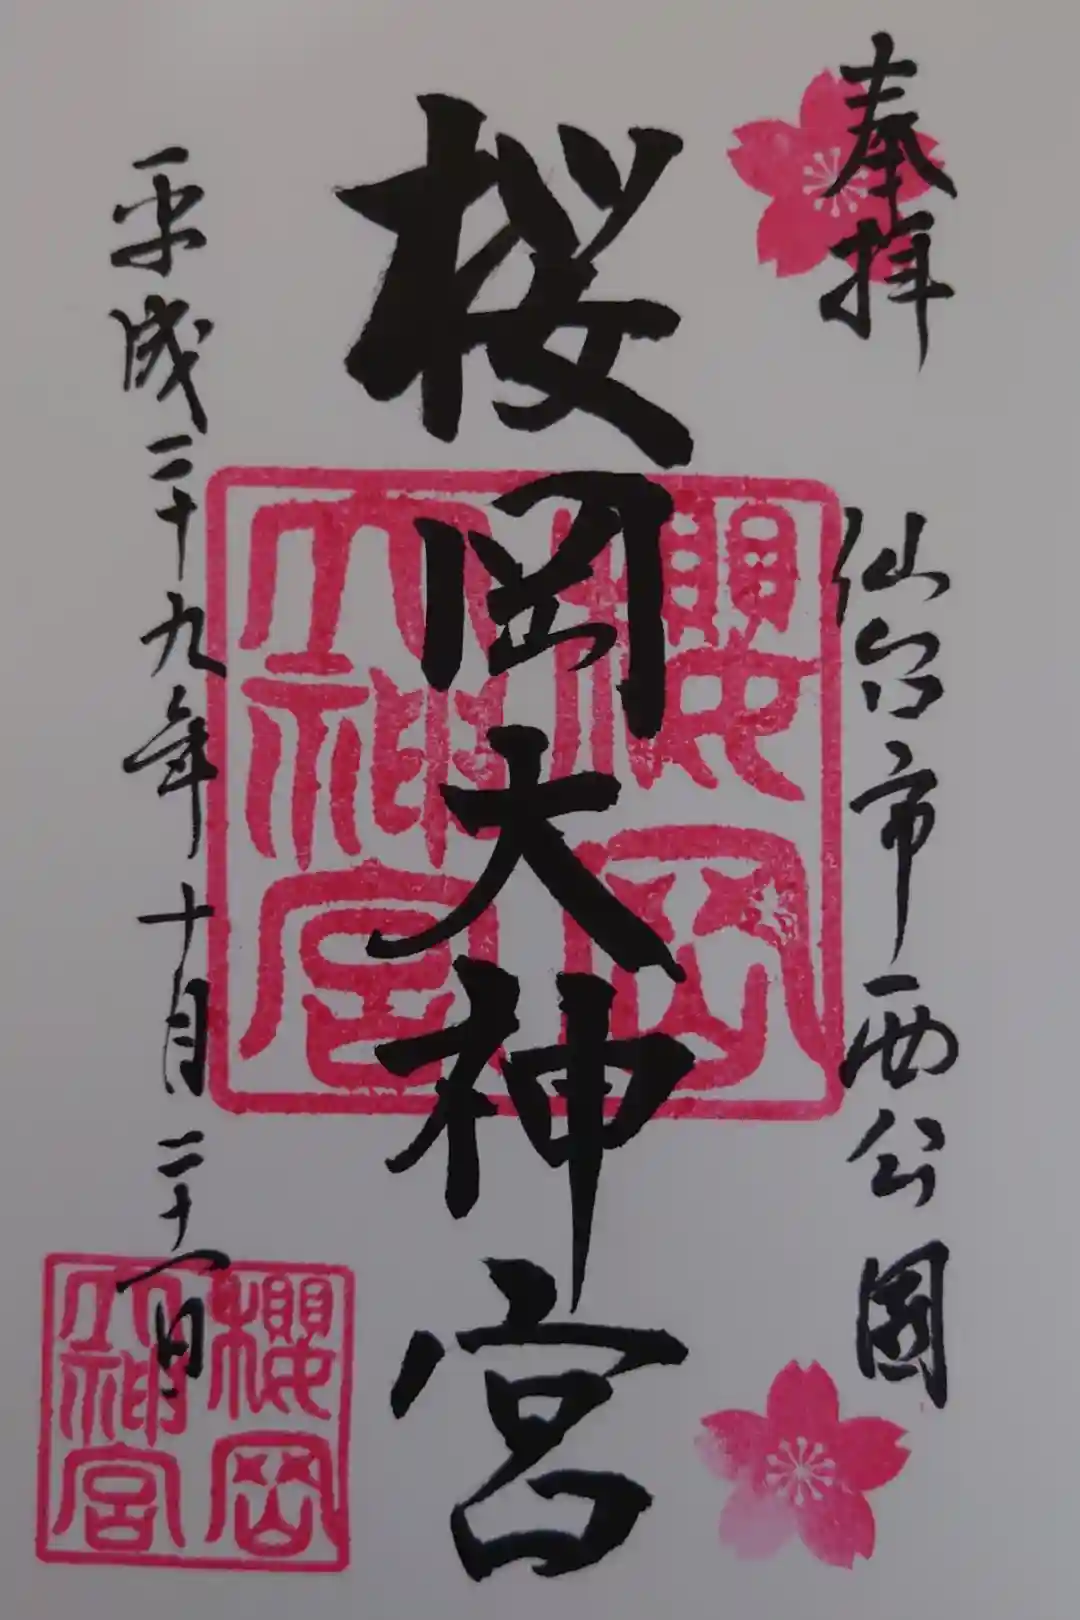 奉拝
仙台市西公園
桜岡大神宮
平成二十九年十月二十一日
櫻岡
大神宮
櫻岡
大神宮